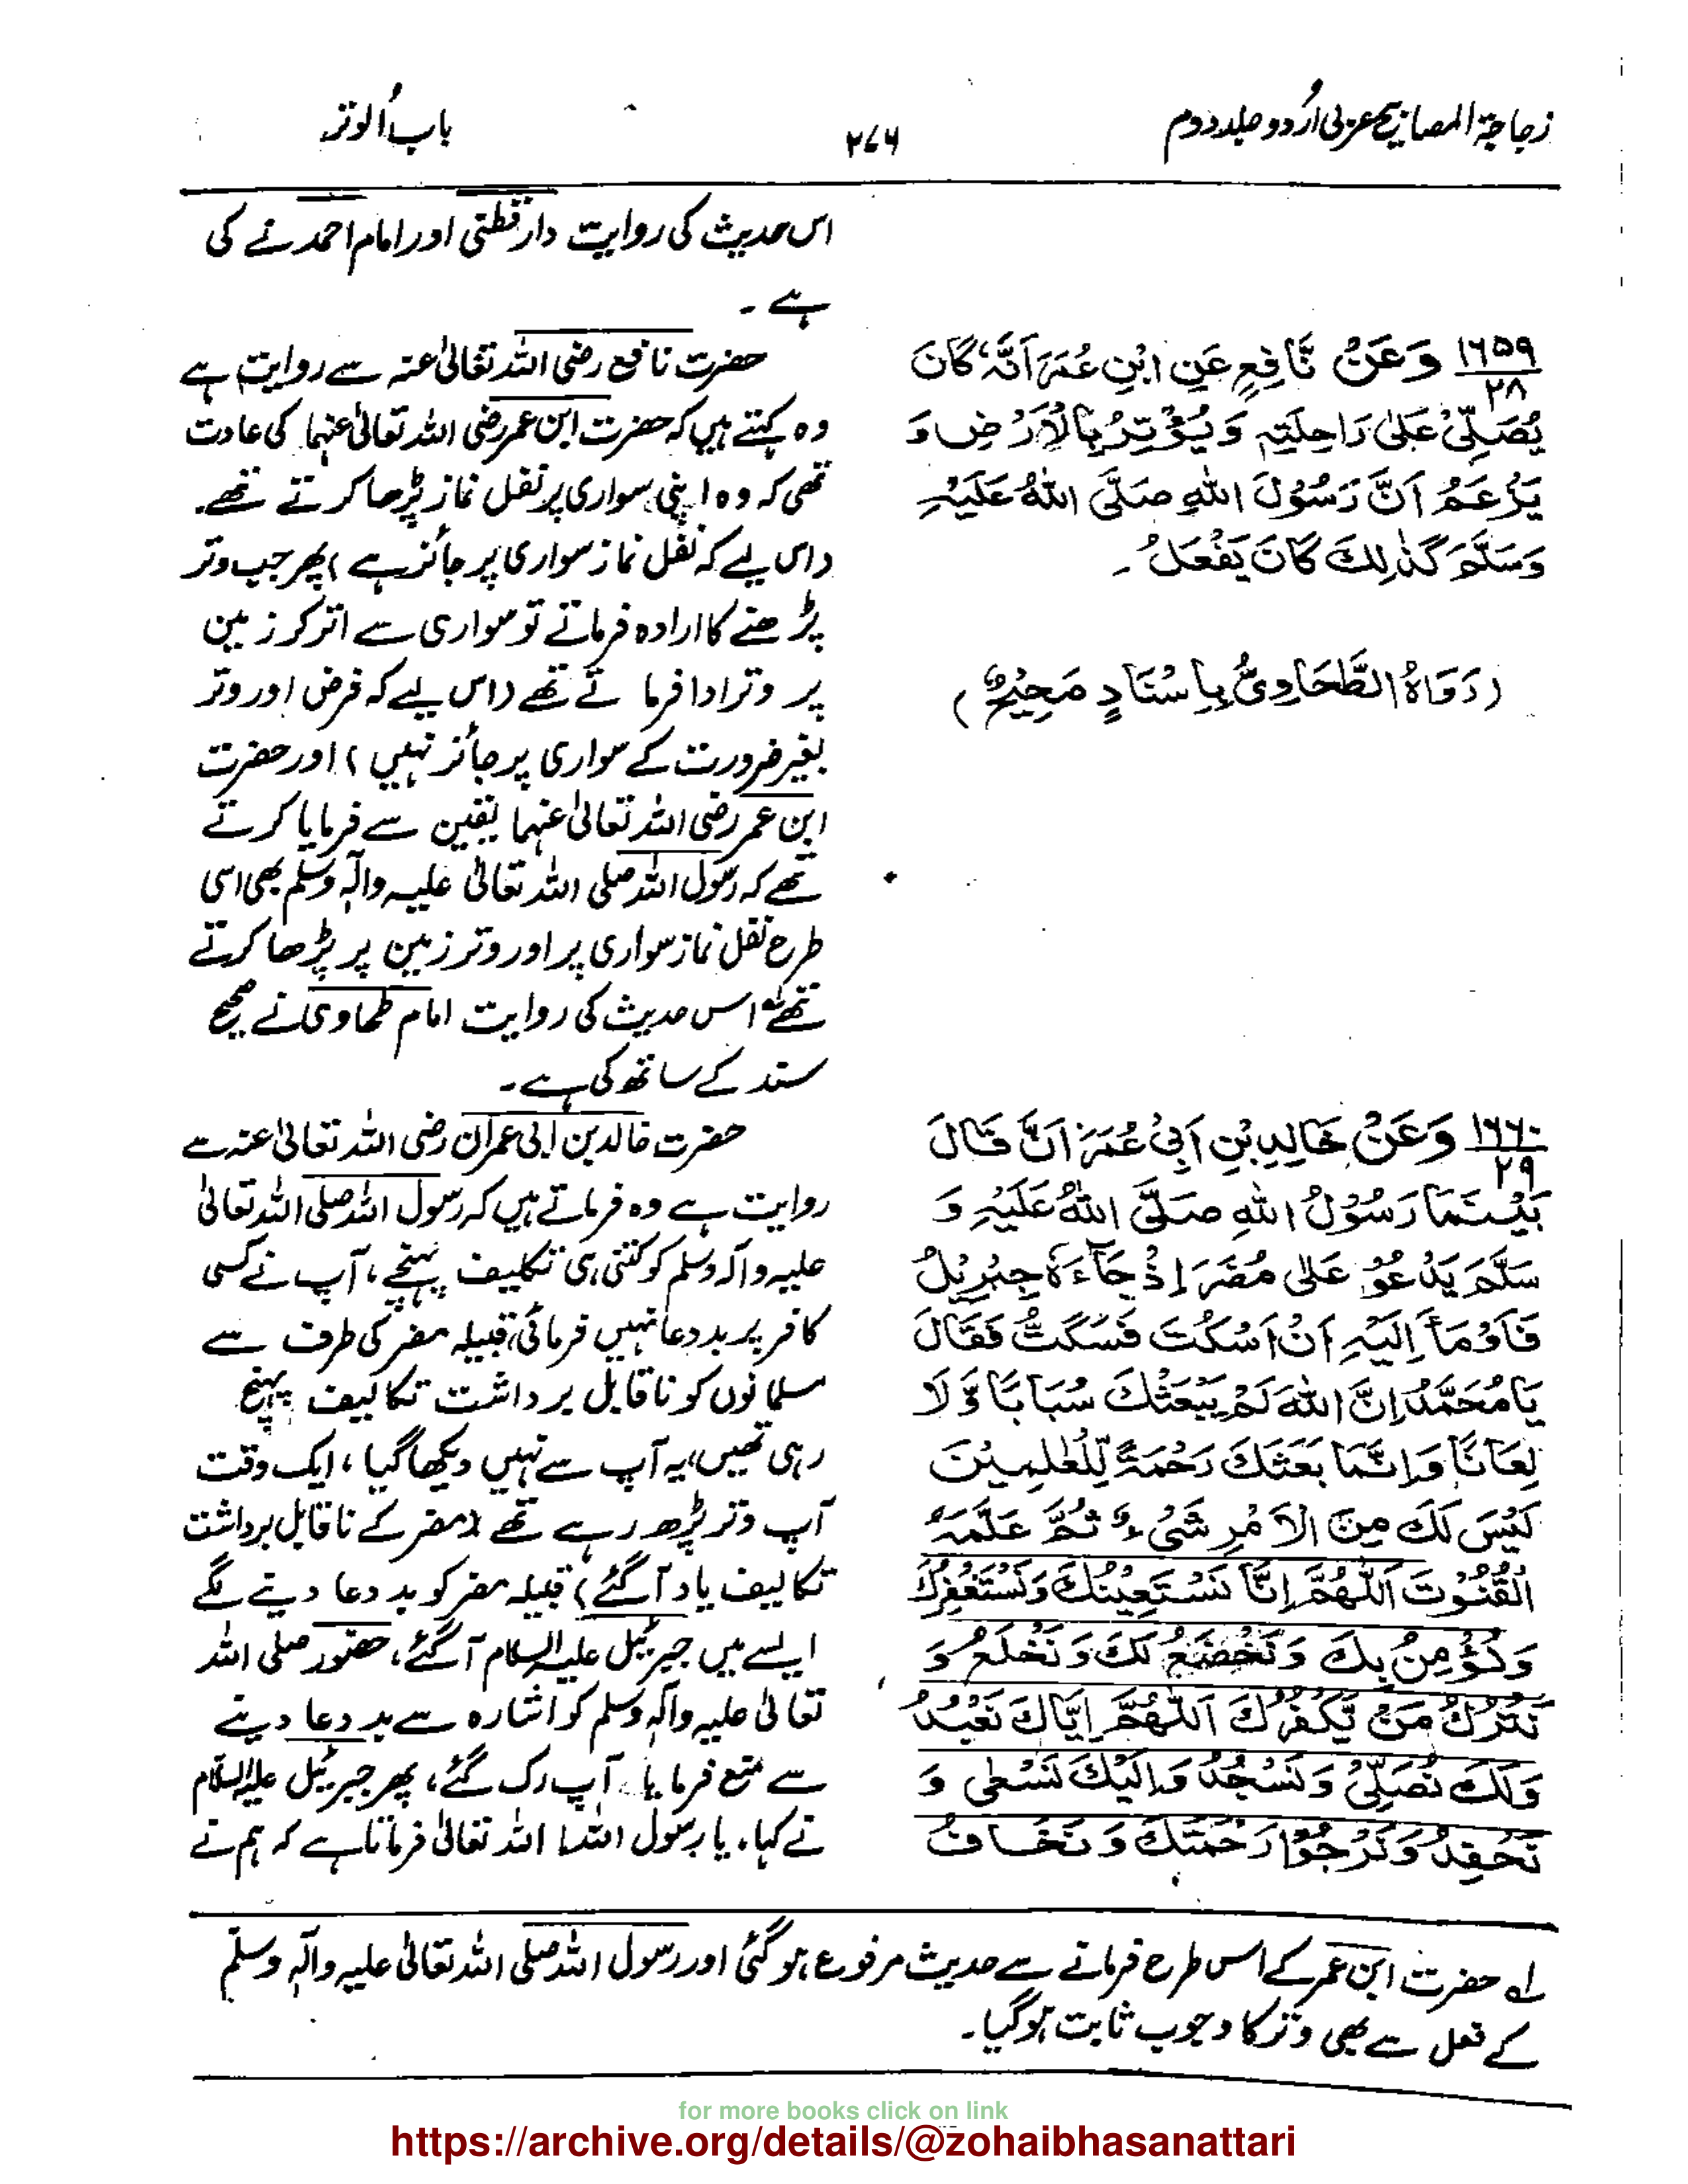 زجاجۃ المصابیح عربی اُردو جلد دوم
۲۷۶
باب الوتر
اس حدیث کی روایت دارقطنی اور امام احمد نے کی
ہے۔
۱۶۵۹
۲۸
وَعَنْ نَّافِعٍ عَنِ ابْنِ عُمَرَ اَنَّہٗ کَانَ
یُصَلِّیْ عَلٰی رَاحِلَتِہٖ وَیُؤْتِرُ بِالْاَرْضِ وَ
یَزْعَمُ اَنَّ رَسُوْلَ اللہِ صَلَّی اللہُ عَلَیْہِ
وَسَلَّمَ کَذٰلِکَ کَانَ یَفْعَلُ۔
(رَوَاہُ الطَّحَاوِیُّ بِاِسْنَادٍ صَحِیْحٍ)
حضرت نافع رضی اللہ تعالیٰ عنہ سے روایت ہے
وہ کہتے ہیں کہ حضرت ابن عمر رضی اللہ تعالیٰ عنہما کی عادت
تھی کہ وہ اپنی سواری پر نفل نماز پڑھا کرتے تھے۔
(اس لیے کہ نفل نماز سواری پر جائز ہے) پھر جب وتر
پڑھنے کا ارادہ فرماتے تو سواری سے اتر کر زمین
پر وتر ادا فرماتے تھے (اس لیے کہ فرض اور وتر
بغیر ضرورت کے سواری پر جائز نہیں) اور حضرت
ابن عمر رضی اللہ تعالیٰ عنہما یقین سے فرمایا کرتے
تھے کہ رسول اللہ صلی اللہ تعالیٰ علیہ والہٖ وسلم بھی اسی
طرح نفل نماز سواری پر اور وتر زمین پر پڑھا کرتے
تھے لہ اس حدیث کی روایت امام طحاوی نے صحیح
سند کے ساتھ کی ہے۔
۱۶۶۰
۲۹
وَعَنْ خَالِدِ بْنِ اَبِیْ عُمَرَ اَنَّ قَالَ
بَیْنَمَا رَسُوْلُ اللہِ صَلَّی اللہُ عَلَیْہِ وَ
سَلَّمَ یَدْعُوْ عَلٰی مُضَرَ اِذْ جَآءَہٗ جِبْرِیْلُ
فَاَوْمَأَ اِلَیْہِ اَنْ اسْکُتْ فَسَکَتَ فَقَالَ
یَا مُحَمَّدُ اِنَّ اللہَ لَمْ یَبْعَثْکَ سُبَابًا وَّلَا
لِعَانًا وَاِنَّمَا بَعَثَکَ رَحْمَۃً لِّلْعٰلَمِیْنَ
لَیْسَ لَکَ مِنَ الْاَمْرِ شَیْءٌ ثُمَّ عَلَّمَہٗ
الْقُنُوْتَ اَللّٰھُمَّ اِنَّا نَسْتَعِیْنُکَ وَنَسْتَغْفِرُکَ
وَنُؤْمِنُ بِکَ وَنَخْضَعُ لَکَ وَنَخْلَعُ وَ
نَتْرُکُ مَنْ یَّکْفُرُکَ اَللّٰھُمَّ اِیَّاکَ نَعْبُدُ
وَلَکَ نُصَلِّیْ وَنَسْجُدُ وَاِلَیْکَ نَسْعٰی وَ
نَحْفِدُ وَنَرْجُوْا رَحْمَتَکَ وَنَخَافُ
حضرت خالد بن ابی عمران رضی اللہ تعالیٰ عنہ سے
روایت ہے وہ فرماتے ہیں کہ رسول اللہ صلی اللہ تعالیٰ
علیہ والہ وسلم کو کتنی ہی تکلیف پہنچے، آپ نے کسی
کافر پر بددعا نہیں فرمائی، قبیلہ مضر کی طرف سے
مسلمانوں کو ناقابل برداشت تکالیف پہنچ
رہی تھیں، یہ آپ سے نہیں دیکھا گیا، ایک وقت
آپ وتر پڑھ رہے تھے (مضر کے ناقابل برداشت
تکالیف یاد آگئے) قبیلہ مضر کو بددعا دینے لگے
ایسے میں جبرئیل علیہ السلام آگئے، حضور صلی اللہ
تعالیٰ علیہ والہٖ وسلم کو اشارہ سے بددعا دینے
سے منع فرمایا۔ آپ رک گئے، پھر جبرئیل علیہ السلام
نے کہا، یا رسول اللہ! اللہ تعالیٰ فرماتا ہے کہ ہم نے
لہ حضرت ابن عمر کے اس طرح فرمانے سے حدیث مرفوع ہو گئی اور رسول اللہ صلی اللہ تعالیٰ علیہ والہٖ وسلم
کے فعل سے بھی وتر کا وجوب ثابت ہو گیا۔
for more books click on link
https://archive.org/details/@zohaibhasanattari